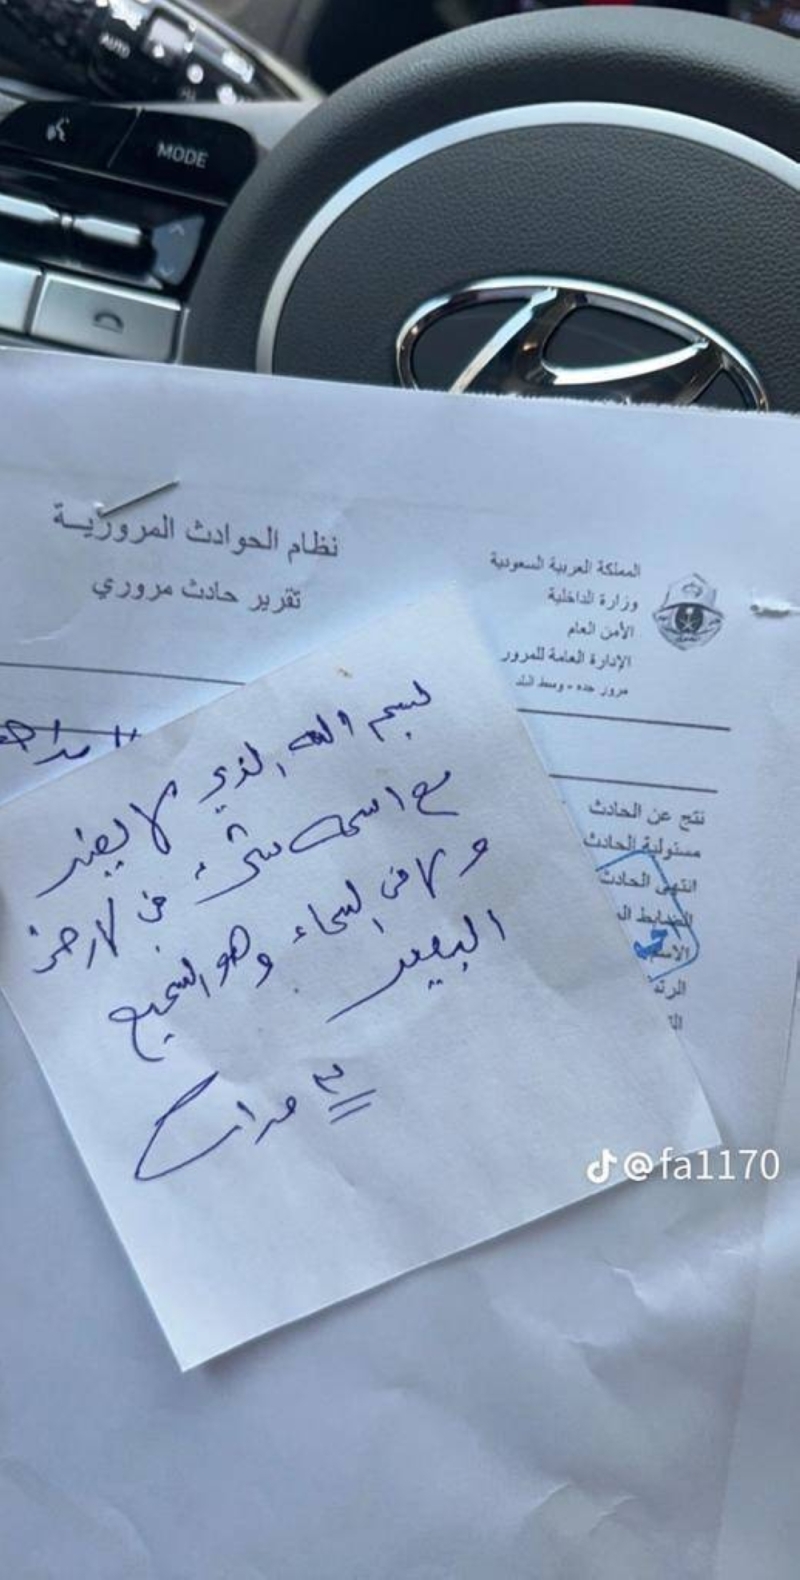 AUTO
MODE
نظام الحوادث المرورية
تقرير حادث مروري
المملكة العربية السعودية
وزارة الداخلية
الأمن العام
الإدارة العامة للمرور
مرور جده - وسط البلد
بسم الله الذي لا يضر
مع اسمه شيء في الارض
و لا في السماء وهو السميع
البصير
٣ مرات
نتج عن الحادث
مسئولية الحادث
انتهى الحادث
الضابط
@fa1170